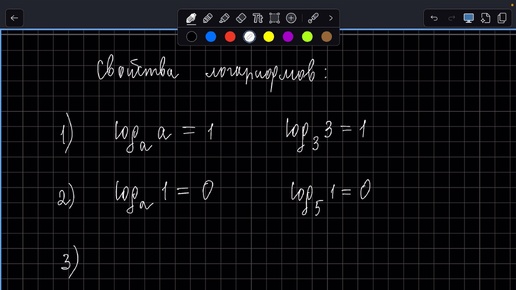 Свойства логарифмов:
1) log_a a = 1 log_3 3 = 1
2) log_a 1 = 0 log_5 1 = 0
3)